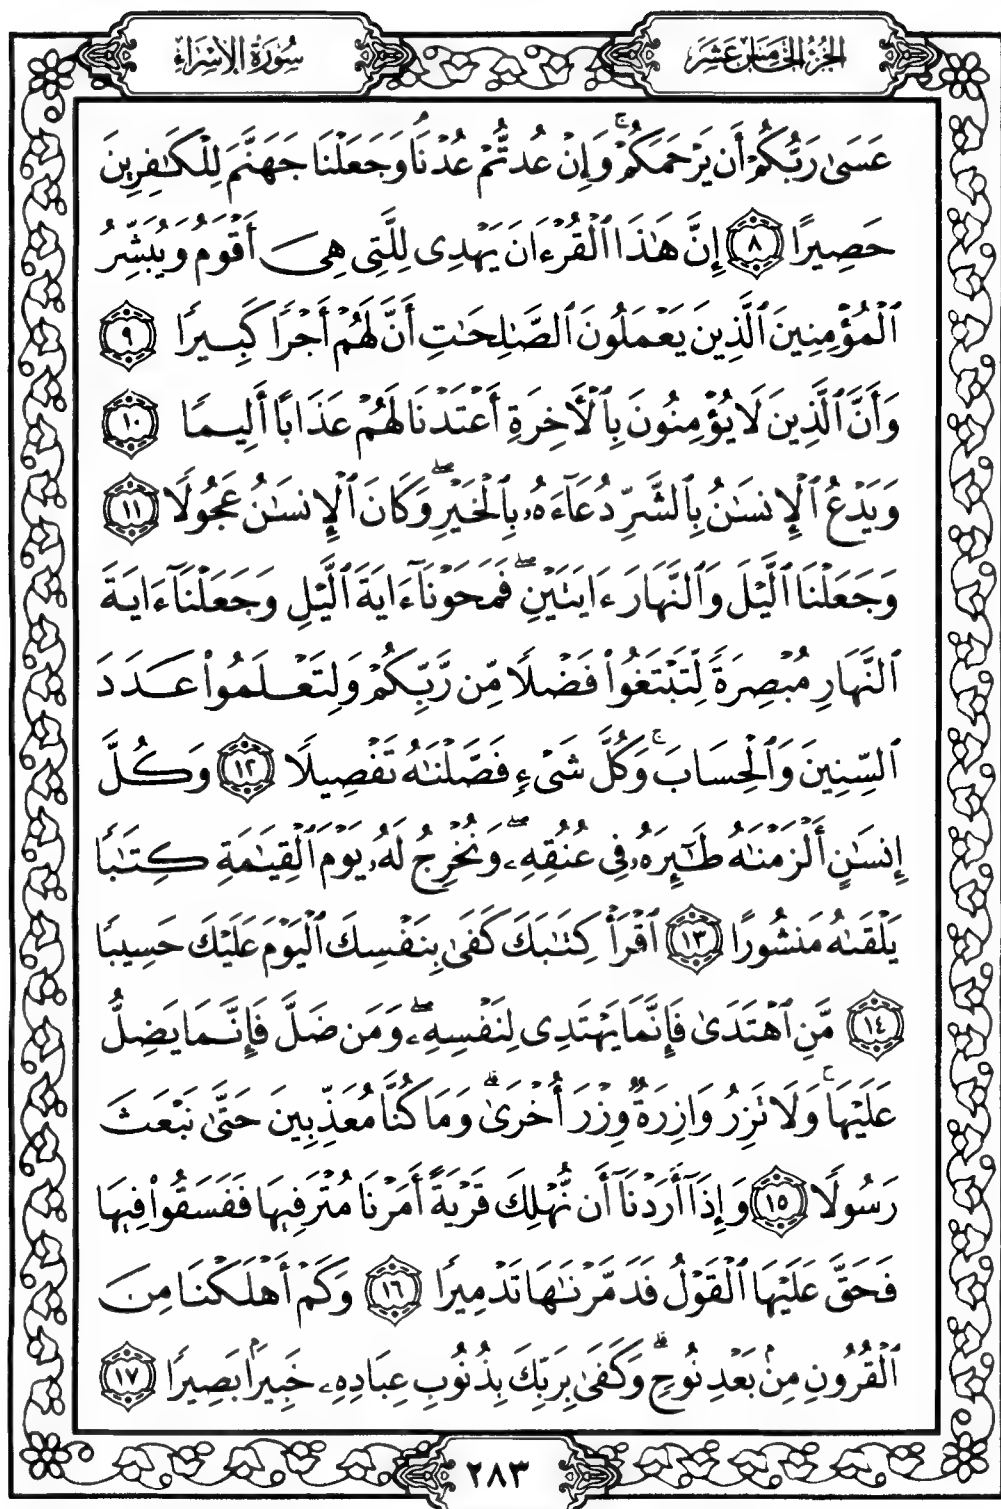 الجزء الخامس عشر
سورة الإسراء
عَسَىٰ رَبُّكُمْ أَن يَرْحَمَكُمْ ۚ وَإِنْ عُدتُّمْ عُدْنَا ۘ وَجَعَلْنَا جَهَنَّمَ لِلْكَـٰفِرِينَ
حَصِيرًا ٨ إِنَّ هَـٰذَا ٱلْقُرْءَانَ يَهْدِى لِلَّتِى هِىَ أَقْوَمُ وَيُبَشِّرُ
ٱلْمُؤْمِنِينَ ٱلَّذِينَ يَعْمَلُونَ ٱلصَّـٰلِحَـٰتِ أَنَّ لَهُمْ أَجْرًا كَبِيرًا ٩
وَأَنَّ ٱلَّذِينَ لَا يُؤْمِنُونَ بِٱلْـَٔاخِرَةِ أَعْتَدْنَا لَهُمْ عَذَابًا أَلِيمًا ١٠
وَيَدْعُ ٱلْإِنسَـٰنُ بِٱلشَّرِّ دُعَآءَهُۥ بِٱلْخَيْرِ ۖ وَكَانَ ٱلْإِنسَـٰنُ عَجُولًا ١١
وَجَعَلْنَا ٱلَّيْلَ وَٱلنَّهَارَ ءَايَتَيْنِ ۖ فَمَحَوْنَآ ءَايَةَ ٱلَّيْلِ وَجَعَلْنَآ ءَايَةَ
ٱلنَّهَارِ مُبْصِرَةً لِّتَبْتَغُوا۟ فَضْلًا مِّن رَّبِّكُمْ وَلِتَعْلَمُوا۟ عَدَدَ
ٱلسِّنِينَ وَٱلْحِسَابَ ۚ وَكُلَّ شَىْءٍ فَصَّلْنَـٰهُ تَفْصِيلًا ١٢ وَكُلَّ
إِنسَـٰنٍ أَلْزَمْنَـٰهُ طَـٰٓئِرَهُۥ فِى عُنُقِهِۦ ۖ وَنُخْرِجُ لَهُۥ يَوْمَ ٱلْقِيَـٰمَةِ كِتَـٰبًا
يَلْقَىٰهُ مَنشُورًا ١٣ ٱقْرَأْ كِتَـٰبَكَ كَفَىٰ بِنَفْسِكَ ٱلْيَوْمَ عَلَيْكَ حَسِيبًا
١٤ مَّنِ ٱهْتَدَىٰ فَإِنَّمَا يَهْتَدِى لِنَفْسِهِۦ ۖ وَمَن ضَلَّ فَإِنَّمَا يَضِلُّ
عَلَيْهَا ۚ وَلَا تَزِرُ وَازِرَةٌ وِزْرَ أُخْرَىٰ ۗ وَمَا كُنَّا مُعَذِّبِينَ حَتَّىٰ نَبْعَثَ
رَسُولًا ١٥ وَإِذَآ أَرَدْنَآ أَن نُّهْلِكَ قَرْيَةً أَمَرْنَا مُتْرَفِيهَا فَفَسَقُوا۟ فِيهَا
فَحَقَّ عَلَيْهَا ٱلْقَوْلُ فَدَمَّرْنَـٰهَا تَدْمِيرًا ١٦ وَكَمْ أَهْلَكْنَا مِنَ
ٱلْقُرُونِ مِنۢ بَعْدِ نُوحٍ ۗ وَكَفَىٰ بِرَبِّكَ بِذُنُوبِ عِبَادِهِۦ خَبِيرًۢا بَصِيرًا ١٧
٢٨٣